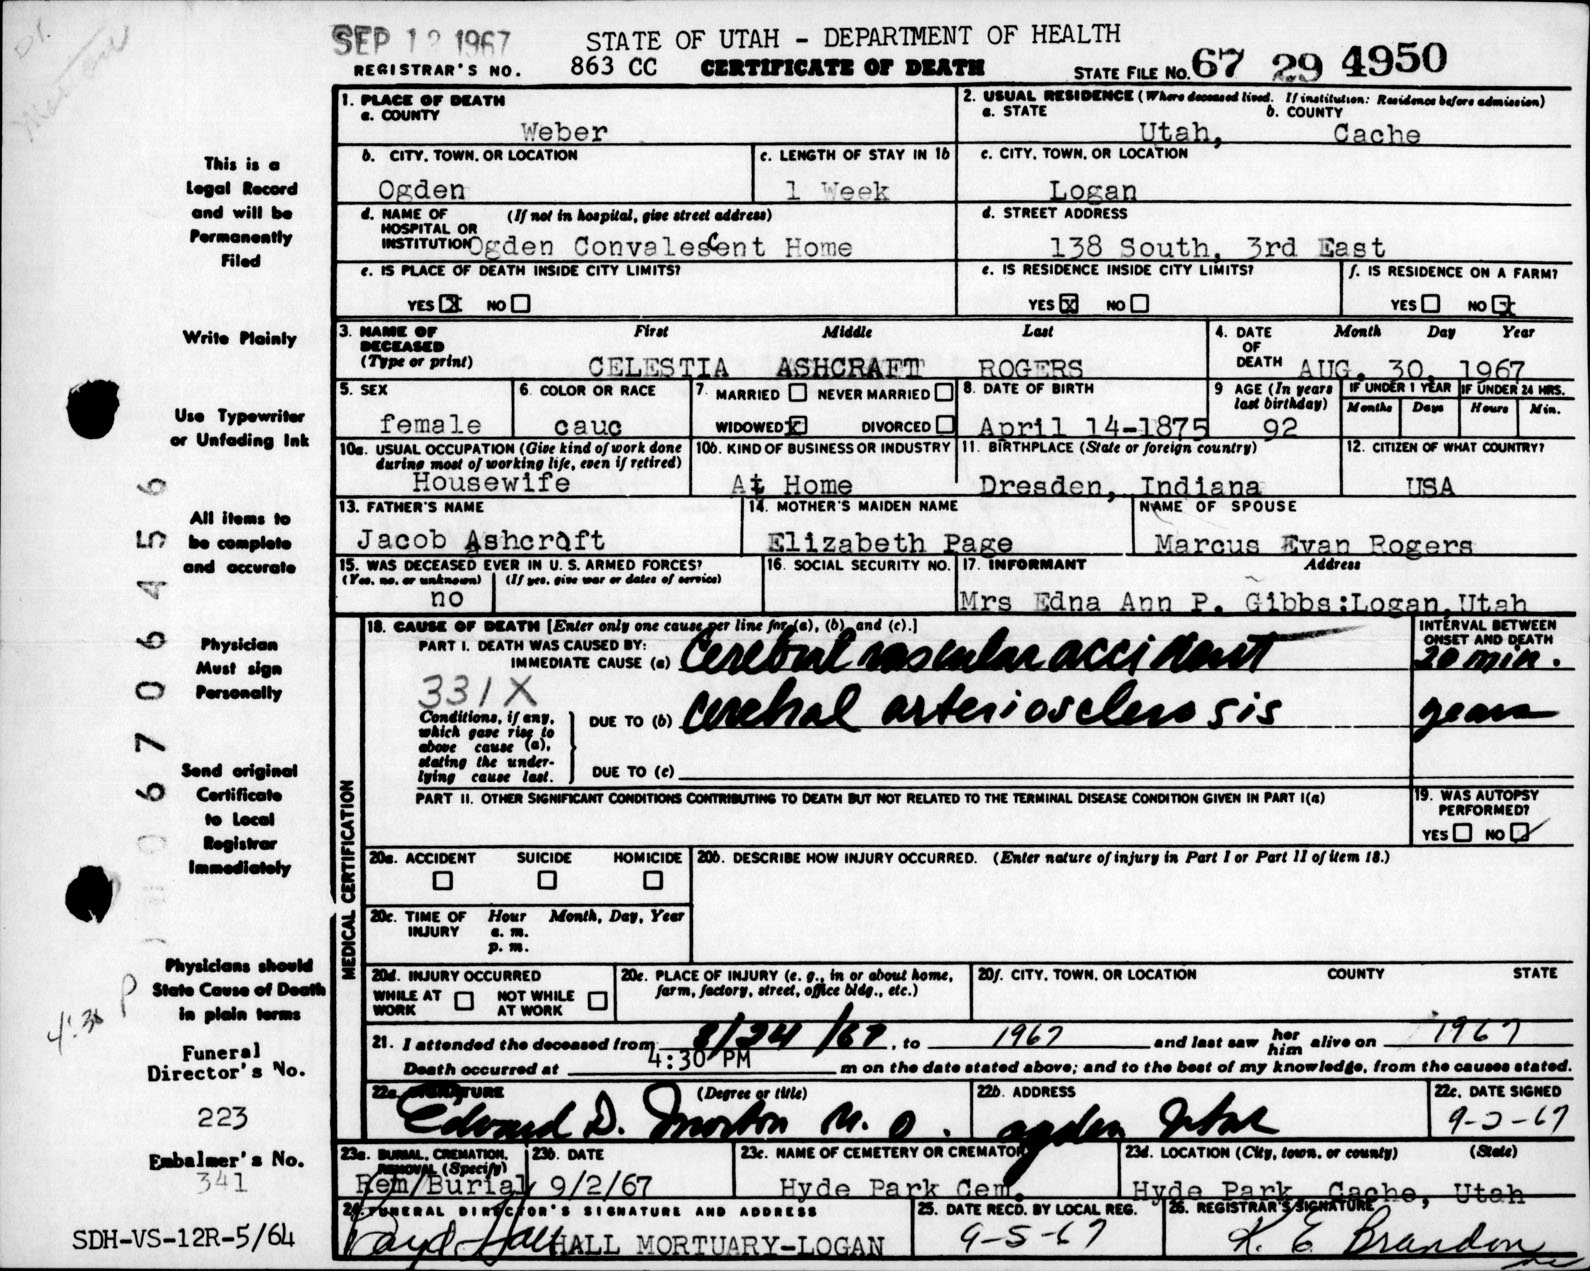 SEP 12 1967 STATE OF UTAH - DEPARTMENT OF HEALTH
REGISTRAR'S NO. 863 CC CERTIFICATE OF DEATH STATE FILE NO. 67 29 4950
1. PLACE OF DEATH
a. COUNTY
Weber
2. USUAL RESIDENCE (Where deceased lived. If institution: Residence before admission)
a. STATE b. COUNTY
Utah, Cache
b. CITY, TOWN, OR LOCATION c. LENGTH OF STAY IN 1b c. CITY, TOWN, OR LOCATION
Ogden 1 Week Logan
d. NAME OF (If not in hospital, give street address) d. STREET ADDRESS
HOSPITAL OR
INSTITUTION Ogden Convalescent Home 138 South, 3rd East
e. IS PLACE OF DEATH INSIDE CITY LIMITS? e. IS RESIDENCE INSIDE CITY LIMITS? f. IS RESIDENCE ON A FARM?
YES X NO YES X NO YES NO X
3. NAME OF First Middle Last 4. DATE Month Day Year
DECEASED OF
(Type or print) CELESTIA ASHCRAFT ROGERS DEATH AUG. 30, 1967
5. SEX 6. COLOR OR RACE 7. MARRIED NEVER MARRIED 8. DATE OF BIRTH 9 AGE (In years last birthday) IF UNDER 1 YEAR IF UNDER 24 HRS.
Months Days Hours Min.
female cauc WIDOWED X DIVORCED April 14-1875 92
10a. USUAL OCCUPATION (Give kind of work done 10b. KIND OF BUSINESS OR INDUSTRY 11. BIRTHPLACE (State or foreign country) 12. CITIZEN OF WHAT COUNTRY?
during most of working life, even if retired)
Housewife At Home Dresden, Indiana USA
13. FATHER'S NAME 14. MOTHER'S MAIDEN NAME NAME OF SPOUSE
Jacob Ashcraft Elizabeth Page Marcus Evan Rogers
15. WAS DECEASED EVER IN U. S. ARMED FORCES? 16. SOCIAL SECURITY NO. 17. INFORMANT Address
(Yes, no, or unknown) (If yes, give war or dates of service)
no Mrs Edna Ann P. Gibbs:Logan,Utah
18. CAUSE OF DEATH [Enter only one cause per line for (a), (b), and (c).] INTERVAL BETWEEN
PART I. DEATH WAS CAUSED BY: ONSET AND DEATH
IMMEDIATE CAUSE (a) Cerebral vascular accident 20 min.
331X
Conditions, if any, DUE TO (b) cerebral arteriosclerosis years
which gave rise to
above cause (a),
stating the under-
lying cause last. DUE TO (c)
PART II. OTHER SIGNIFICANT CONDITIONS CONTRIBUTING TO DEATH BUT NOT RELATED TO THE TERMINAL DISEASE CONDITION GIVEN IN PART I(a) 19. WAS AUTOPSY
PERFORMED?
YES NO ✓
MEDICAL CERTIFICATION
20a. ACCIDENT SUICIDE HOMICIDE 20b. DESCRIBE HOW INJURY OCCURRED. (Enter nature of injury in Part I or Part II of item 18.)
20c. TIME OF Hour Month, Day, Year
INJURY a. m.
p. m.
20d. INJURY OCCURRED 20e. PLACE OF INJURY (e. g., in or about home, 20f. CITY, TOWN, OR LOCATION COUNTY STATE
WHILE AT NOT WHILE farm, factory, street, office bldg., etc.)
WORK AT WORK
21. I attended the deceased from 8/24/67, to 1967 and last saw her him alive on 1967
Death occurred at 4:30 PM m on the date stated above; and to the best of my knowledge, from the causes stated.
22a. SIGNATURE (Degree or title) 22b. ADDRESS 22c. DATE SIGNED
Edward D. Morton M. D. Ogden Utah 9-2-67
23a. BURIAL, CREMATION, 23b. DATE 23c. NAME OF CEMETERY OR CREMATORY 23d. LOCATION (City, town, or county) (State)
REMOVAL (Specify)
Rem/Burial 9/2/67 Hyde Park Cem. Hyde Park, Cache, Utah
24. FUNERAL DIRECTOR'S SIGNATURE AND ADDRESS 25. DATE RECD. BY LOCAL REG. 26. REGISTRAR'S SIGNATURE
HALL MORTUARY-LOGAN 9-5-67 K. E. Brandon
This is a
Legal Record
and will be
Permanently
Filed
Write Plainly
Use Typewriter
or Unfading Ink
All items to
be complete
and accurate
Physician
Must sign
Personally
Send original
Certificate
to Local
Registrar
Immediately
Physicians should
State Cause of Death
in plain terms
4:30 P
Funeral
Director's No.
223
Embalmer's No.
341
SDH-VS-12R-5/64